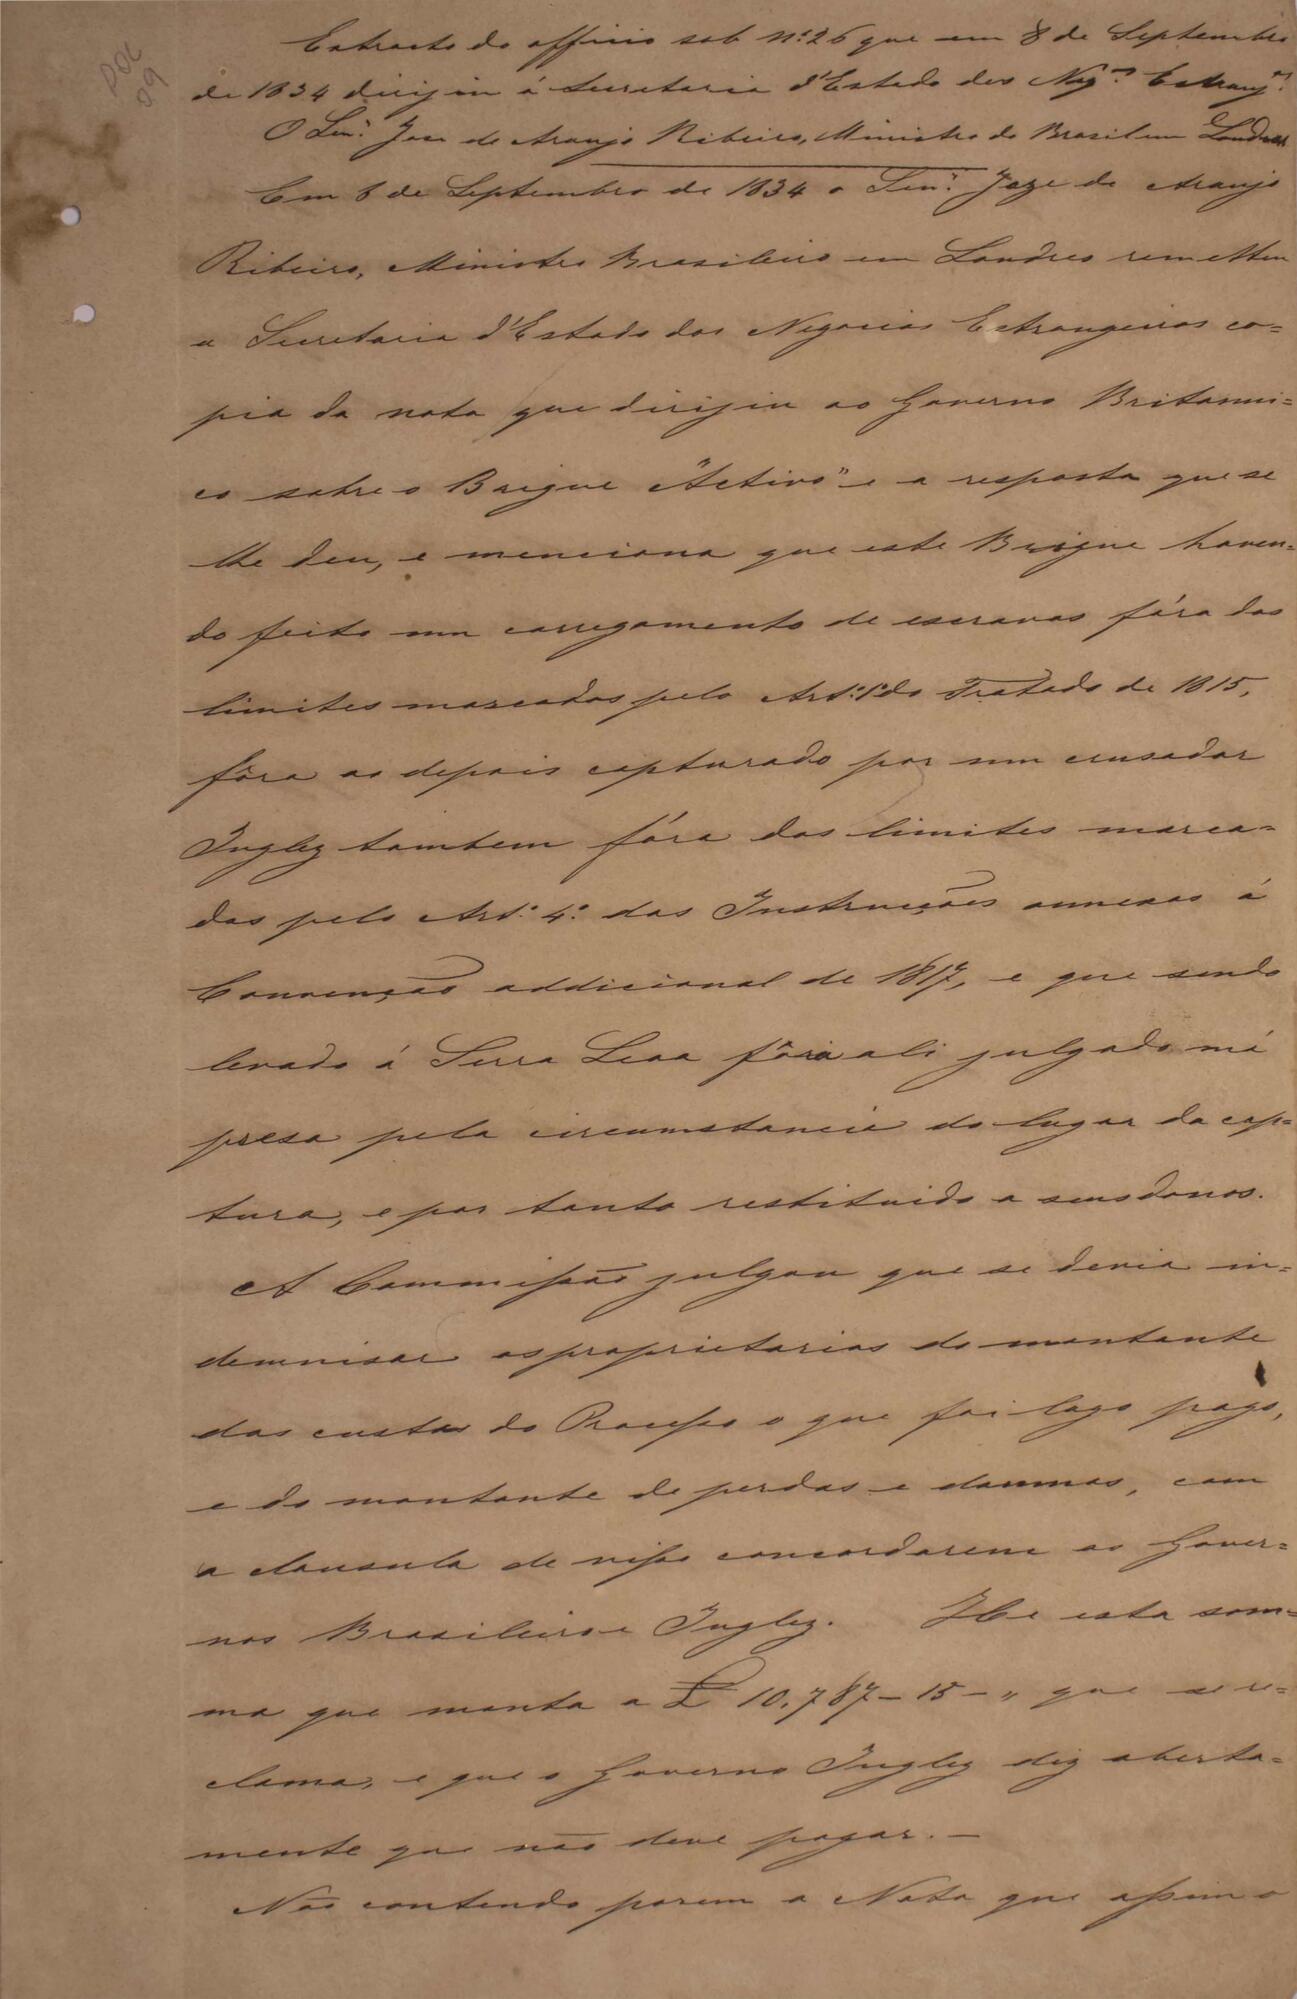 DOC
09
Extracto do officio sob nº 26 que em 8 de Septembro
de 1834 dirijiu á Secretaria d'Estado dos Neg.os Estranj.os
O Sen.r Jose de Araujo Ribeiro, Ministro do Brasil em Londres
Em 8 de Septembro de 1834 o Sen.r Joze de Araujo
Ribeiro, Ministro Brasileiro em Londres remetteu
a Secretaria d'Estado dos Negocios Estrangeiros co=
pia da nota que dirijiu ao Governo Britanni=
co sobre o Brigue "Activo" e a resposta que se
lhe deu, e menciona que este Brigue haven=
do feito um carregamento de escravos fóra dos
limites marcados pelo Art.º 1º do Tratado de 1815,
fôra ao depois capturado por um crusador
Inglez tambem fóra dos limites marca=
dos pelo Art.º 4.º das Instrucções annexas á
Convenção addicional de 1817, e que sendo
levado á Serra Leoa fôra ali julgado má
presa pela circumstancia do lugar da cap=
tura, e por tanto restituido a seus donos.
A Commissão julgou que se devia in=
demnisar os proprietarios do montante
das custas do Processo o que foi logo pago,
e do montante de perdas e damnos, com
a clausula de nisso concordarem os Gover=
nos Brasileiro e Inglez. He esta som=
ma que monta a £ 10.787-15-" que se re=
clama, e que o Governo Inglez diz aberta=
mente que não deve pagar. —
Não contendo porem a Nota que assim o